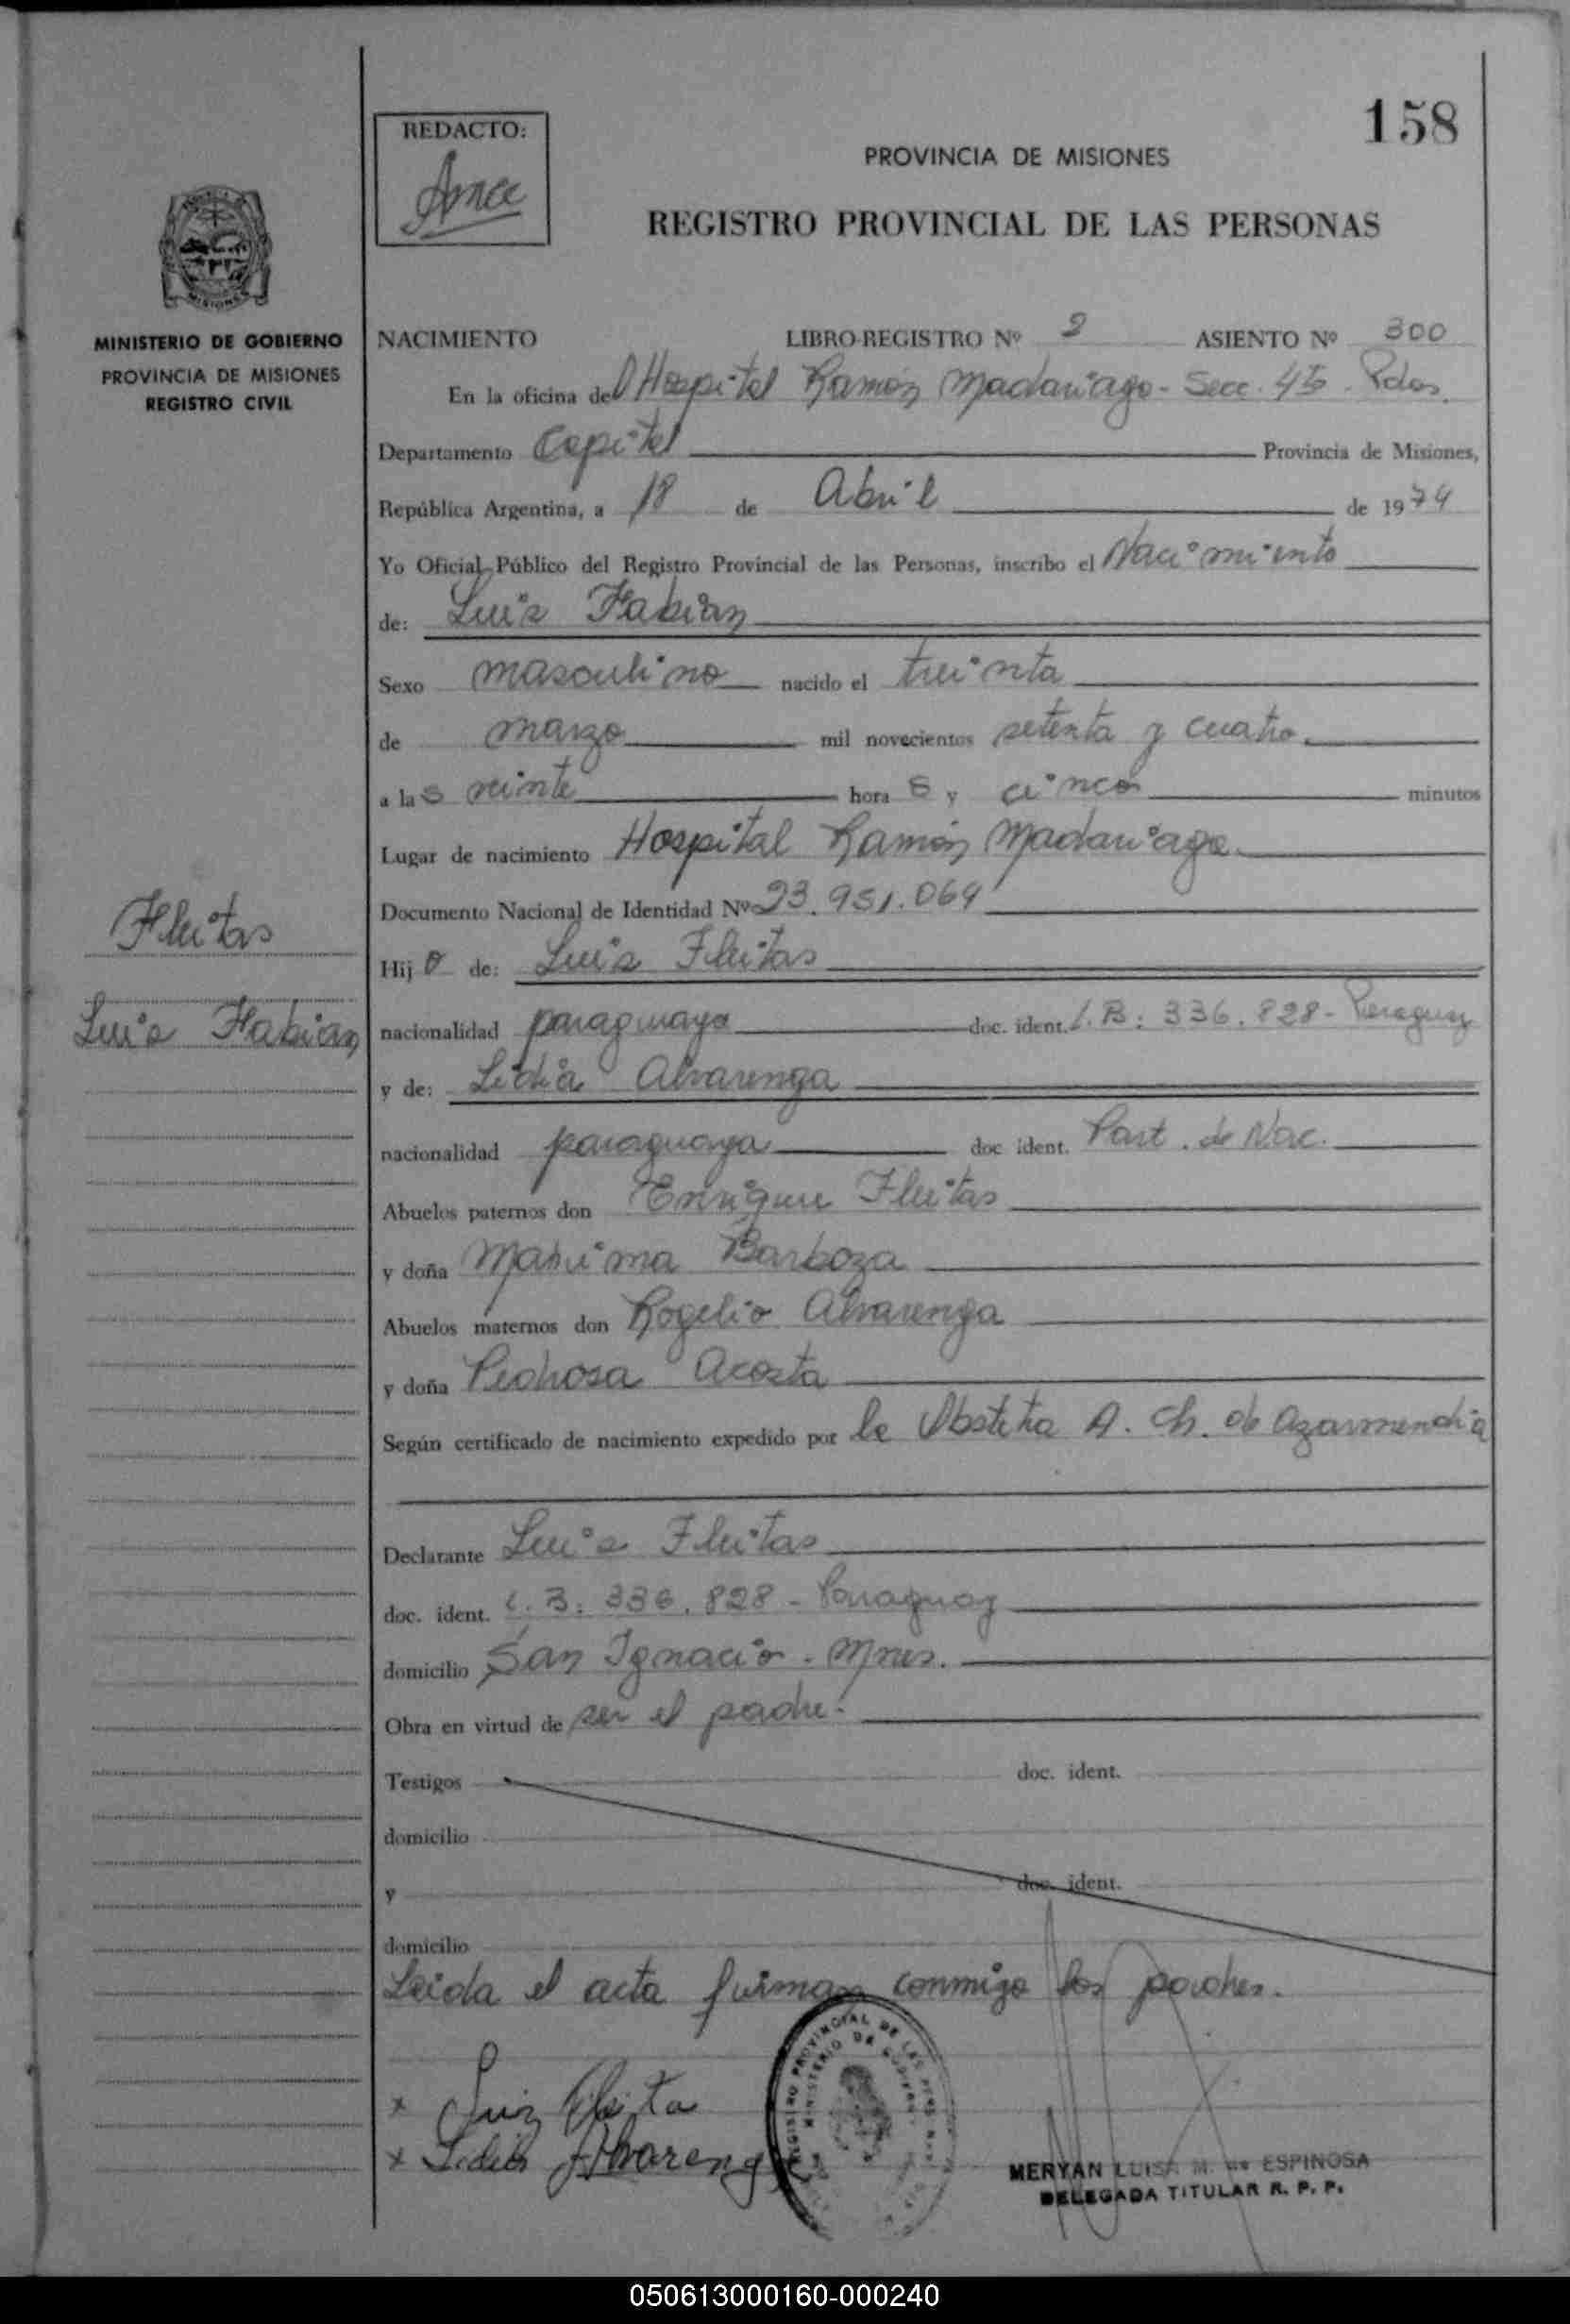 158
REDACTO:
PROVINCIA DE MISIONES
REGISTRO PROVINCIAL DE LAS PERSONAS
MINISTERIO DE GOBIERNO
PROVINCIA DE MISIONES
REGISTRO CIVIL
NACIMIENTO LIBRO-REGISTRO Nº 2 ASIENTO Nº 300
En la oficina del Hospital Ramón Madariaga - Secc. 4ta - Pdas.
Departamento Capital Provincia de Misiones,
República Argentina, a 18 de Abril de 1974
Yo Oficial Público del Registro Provincial de las Personas, inscribo el Nacimiento
de: Luis Fabián
Sexo masculino nacido el treinta
de marzo mil novecientos setenta y cuatro.
a las veinte hora s y cinco minutos
Lugar de nacimiento Hospital Ramón Madariaga.
Documento Nacional de Identidad Nº 23.951.064
Fleitas
Hijo de: Luis Fleitas
Luis Fabián
nacionalidad paraguaya doc. ident. L.B: 336.828 - Paraguay
y de: Lidia Alvarenga
nacionalidad paraguaya doc ident. Part. de Nac.
Abuelos paternos don Enrique Fleitas
y doña Barboza
Abuelos maternos don Rogelio Alvarenga
y doña Pedrosa Acosta
Según certificado de nacimiento expedido por la Obstetra A. Ch. de Azarmendia
Declarante Luis Fleitas
doc. ident. L.B: 336.828 - Paraguay
domicilio San Ignacio - Mnes.
Obra en virtud de ser el padre.
Testigos doc. ident.
domicilio
y doc. ident.
domicilio
Leida el acta firman conmigo los padres.
x Luiz Fleita
x Lidia Alvarenga
REGISTRO PROVINCIAL DE LAS PERSONAS
MINISTERIO DE GOBIERNO
MERYAN LUISA M. de ESPINOSA
DELEGADA TITULAR R. P. P.
050613000160-000240